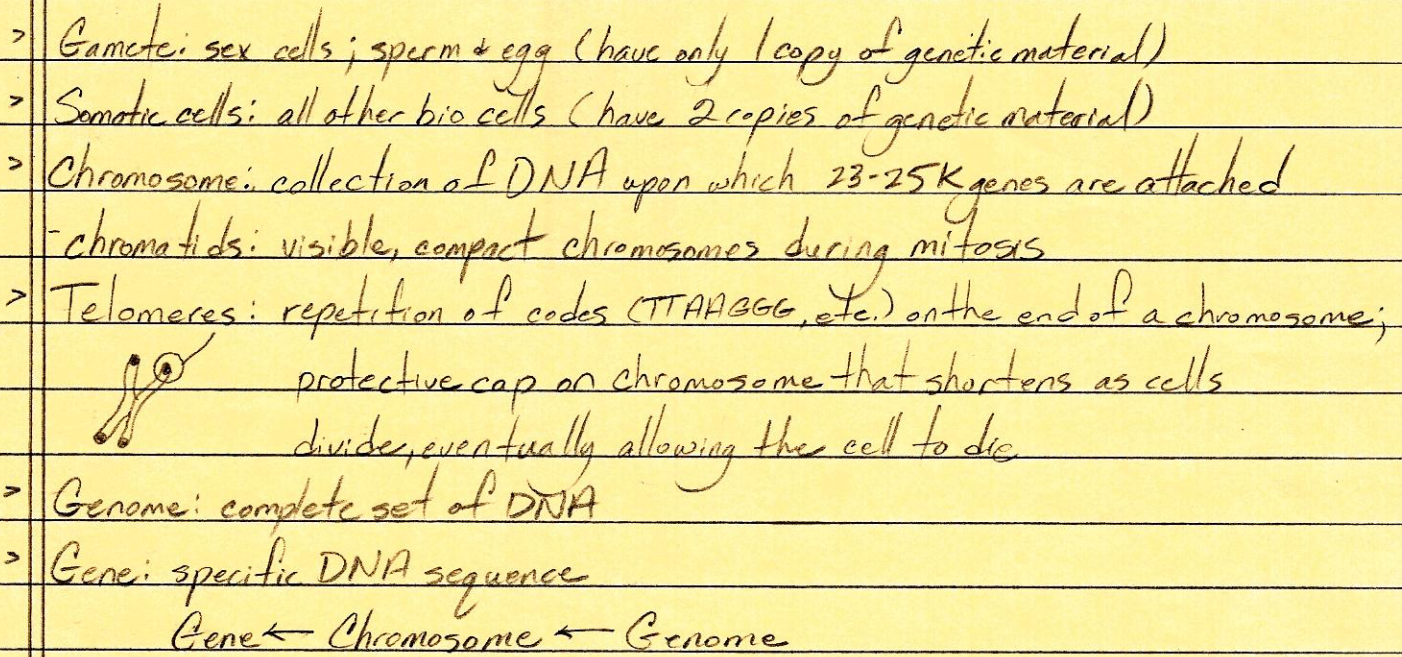 > Gamete: sex cells; sperm & egg (have only 1 copy of genetic material)
> Somatic cells: all other bio cells (have 2 copies of genetic material)
> Chromosome: collection of DNA upon which 23-25K genes are attached
- chromatids: visible, compact chromosomes during mitosis
> Telomeres: repetition of codes (TTAAGGG, etc.) on the end of a chromosome;
protective cap on chromosome that shortens as cells
divide, eventually allowing the cell to die
> Genome: complete set of DNA
> Gene: specific DNA sequence
Gene ← Chromosome ← Genome